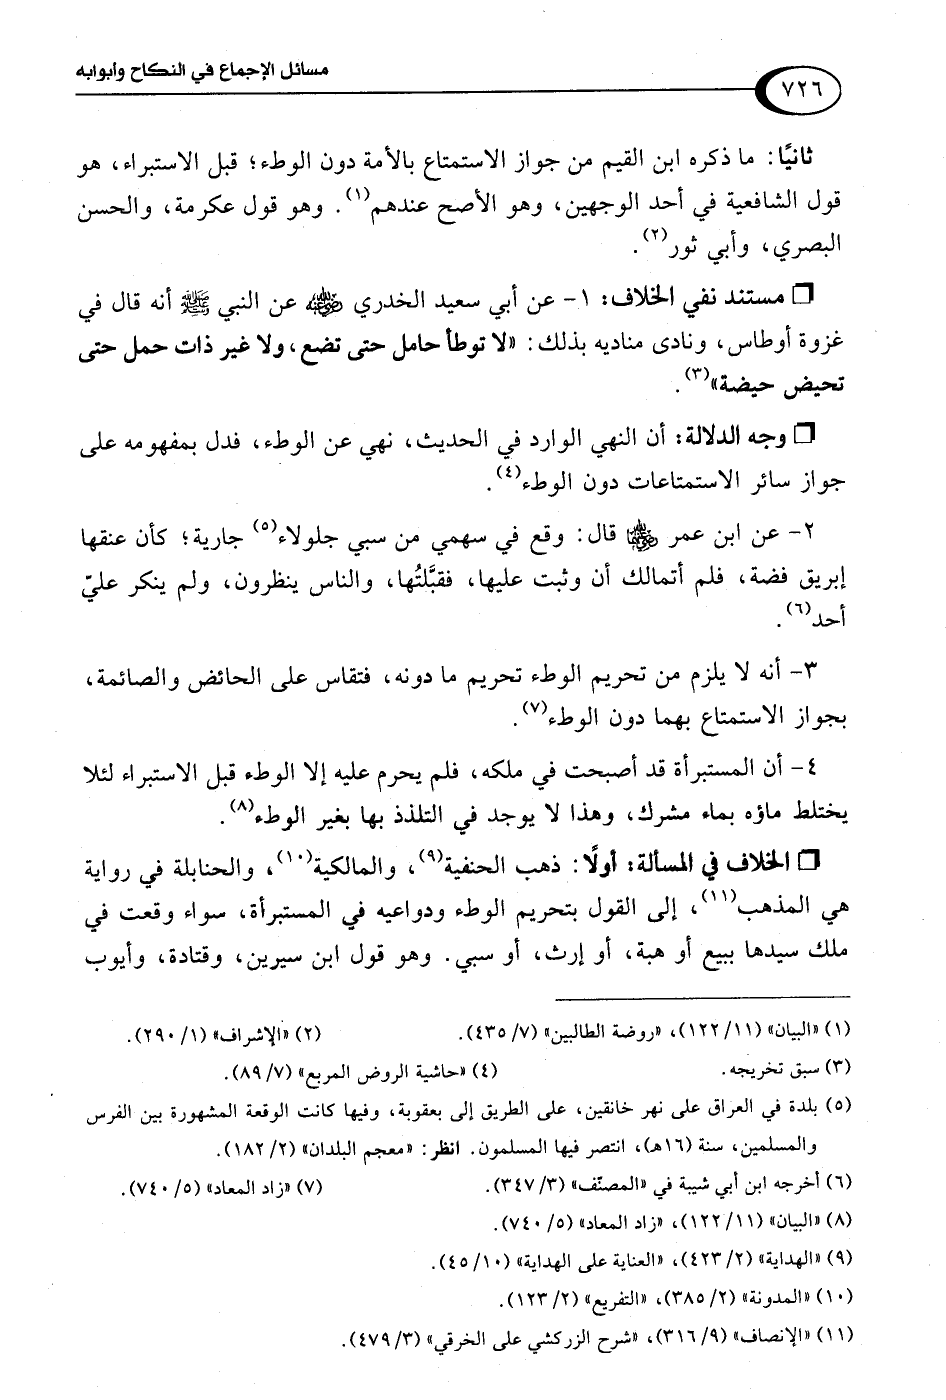 مسائل الإجماع في النكاح وأبوابه
٧٢٦
ثانيًا: ما ذكره ابن القيم من جواز الاستمتاع بالأمة دون الوطء؛ قبل الاستبراء، هو
قول الشافعية في أحد الوجهين، وهو الأصح عندهم(١). وهو قول عكرمة، والحسن
البصري، وأبي ثور(٢).
❒ مستند نفي الخلاف: ١- عن أبي سعيد الخدري رضي الله عنه عن النبي ﷺ أنه قال في
غزوة أوطاس، ونادى مناديه بذلك: «لا توطأ حامل حتى تضع، ولا غير ذات حمل حتى
تحيض حيضة»(٣).
❒ وجه الدلالة: أن النهي الوارد في الحديث، نهي عن الوطء، فدل بمفهومه على
جواز سائر الاستمتاعات دون الوطء(٤).
٢- عن ابن عمر رضي الله عنهما قال: وقع في سهمي من سبي جلولاء(٥) جارية؛ كأن عنقها
إبريق فضة، فلم أتمالك أن وثبت عليها، فقبَّلتُها، والناس ينظرون، ولم ينكر عليّ
أحد(٦).
٣- أنه لا يلزم من تحريم الوطء تحريم ما دونه، فتقاس على الحائض والصائمة،
بجواز الاستمتاع بهما دون الوطء(٧).
٤- أن المستبرأة قد أصبحت في ملكه، فلم يحرم عليه إلا الوطء قبل الاستبراء لئلا
يختلط ماؤه بماء مشرك، وهذا لا يوجد في التلذذ بها بغير الوطء(٨).
❒ الخلاف في المسألة: أولًا: ذهب الحنفية(٩)، والمالكية(١٠)، والحنابلة في رواية
هي المذهب(١١)، إلى القول بتحريم الوطء ودواعيه في المستبرأة، سواء وقعت في
ملك سيدها ببيع أو هبة، أو إرث، أو سبي. وهو قول ابن سيرين، وقتادة، وأيوب
(١) «البيان» (١٢٢/١١)، «روضة الطالبين» (٤٣٥/٧). (٢) «الإشراف» (٢٩٠/١).
(٣) سبق تخريجه. (٤) «حاشية الروض المربع» (٨٩/٧).
(٥) بلدة في العراق على نهر خانقين، على الطريق إلى بعقوبة، وفيها كانت الوقعة المشهورة بين الفرس
والمسلمين، سنة (١٦هـ)، انتصر فيها المسلمون. انظر: «معجم البلدان» (١٨٢/٢).
(٦) أخرجه ابن أبي شيبة في «المصنّف» (٣٤٧/٣). (٧) «زاد المعاد» (٧٤٠/٥).
(٨) «البيان» (١٢٢/١١)، «زاد المعاد» (٧٤٠/٥).
(٩) «الهداية» (٤٢٣/٢)، «العناية على الهداية» (٤٥/١٠).
(١٠) «المدونة» (٣٨٥/٢)، «التفريع» (١٢٣/٢).
(١١) «الإنصاف» (٣١٦/٩)، «شرح الزركشي على الخرقي» (٤٧٩/٣).